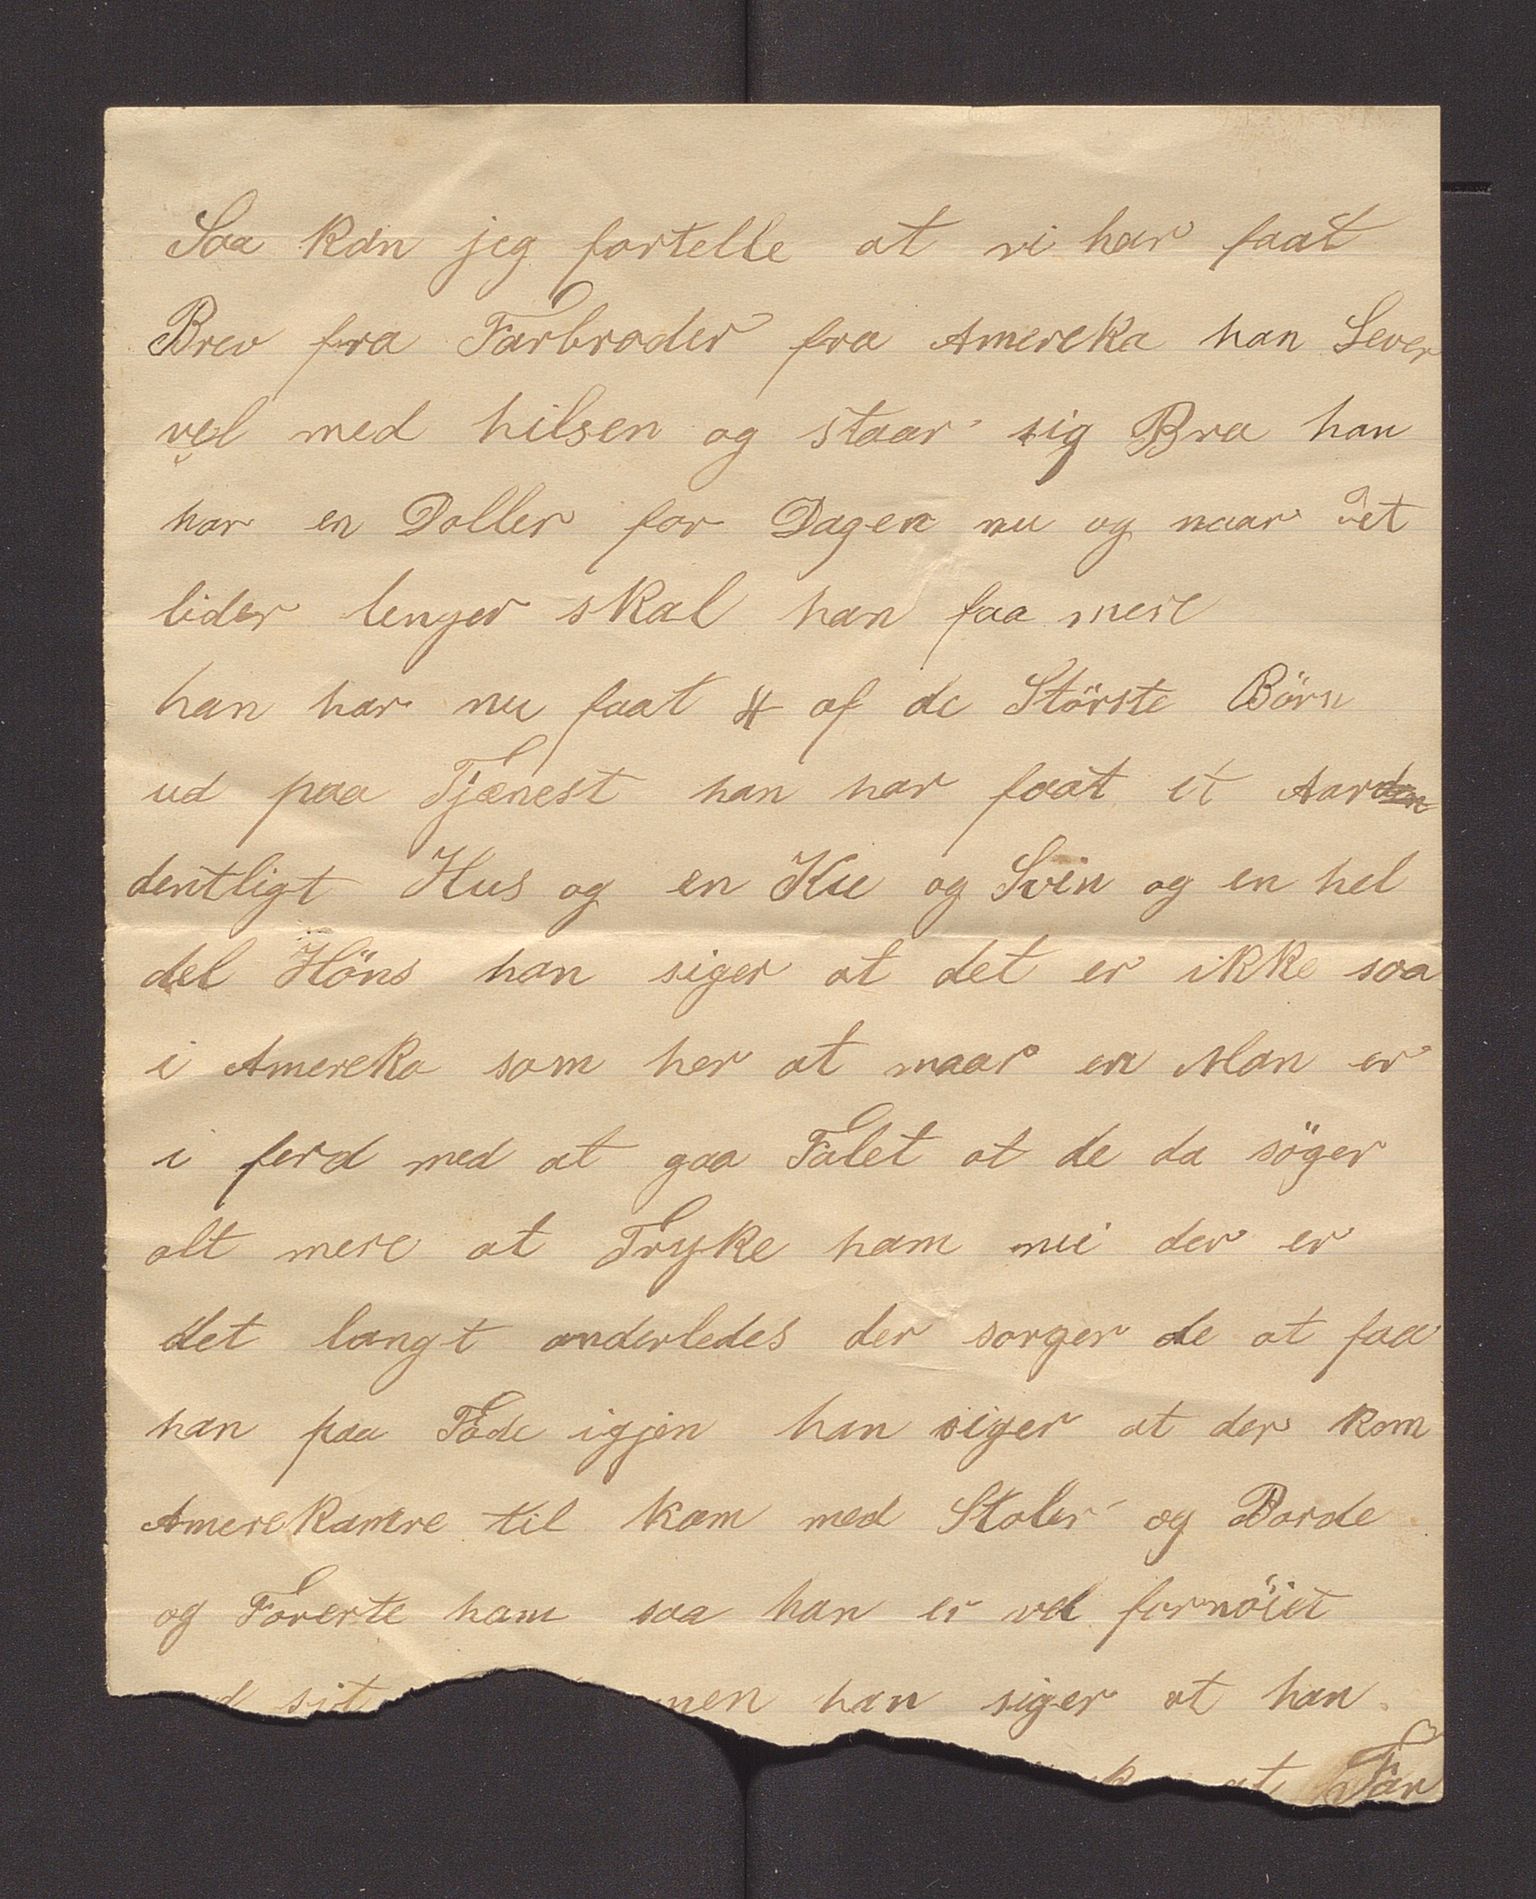 Saa kan jeg fortelle at vi har faat
Brev fra Farbroder fra Amereka han Lever
vel med hilsen og staar sig Bra han
har en Doller for Dagen nu og naar det
lider lenger skal han faa mere
han har nu faat 4 af de Störste Börn
ud paa Tjænest han har faat et Aarden
dentligt Hus og en Ku og Svin og en hel
del Höns han siger at det er ikke saa
i Amereka som her at naar en Man er
i ferd med at gaa Falet at de da söger
alt mere at Tryke ham nei der er
det langt anderledes der sorger de at faa
han paa Föde igjen han siger at der kom
Amerekanere til kam med Stoler og Borde
og Forerte ham saa han er vel fornöiet
sit men han siger at han
at Far